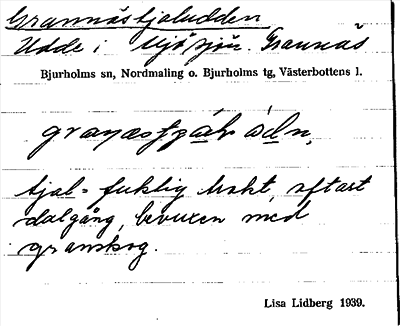 Grannästjaludden
Udde i Mjösjön. Grannäs
Bjurholms sn, Nordmaling o. Bjurholms tg, Västerbottens l.
tjal = fuktig trakt, oftast
dalgång, bevuxen med
granskog.
Lisa Lidberg 1939.